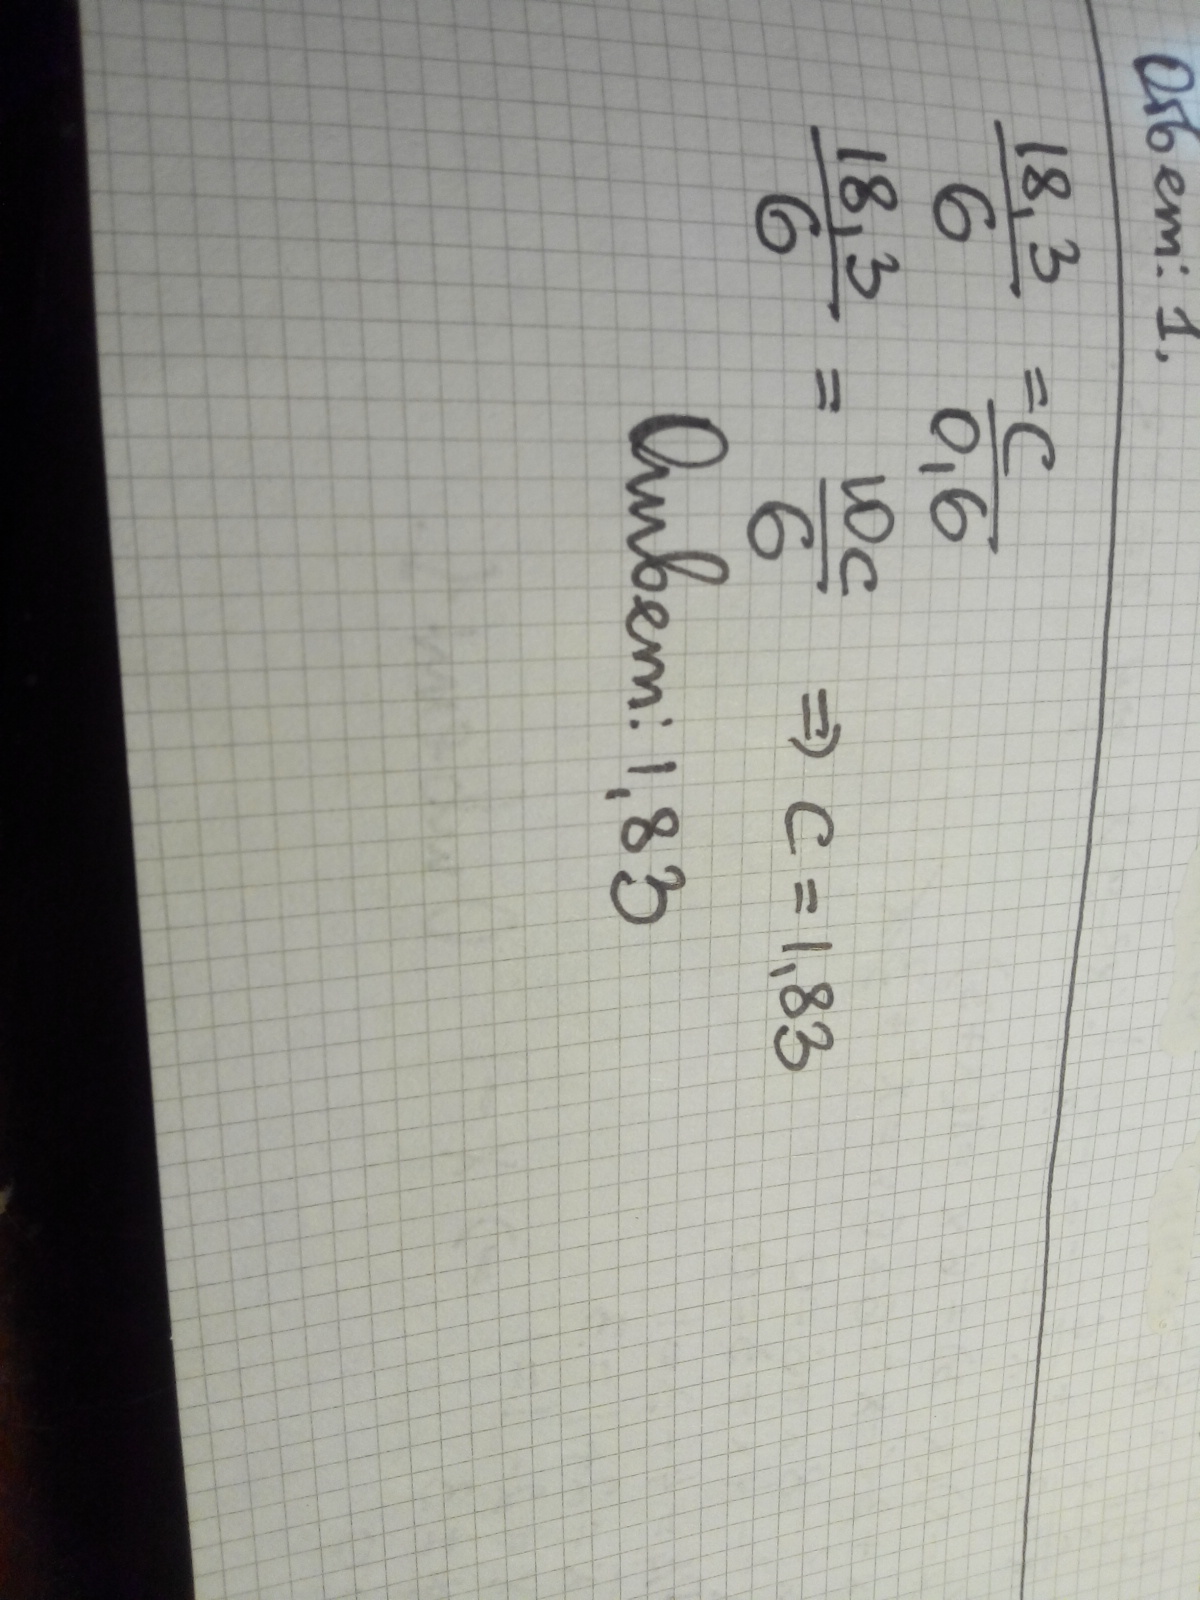 Ответ: 1.
18,3/6 = c/0,6
18,3/6 = 10c/6 => c = 1,83
Ответ: 1,83